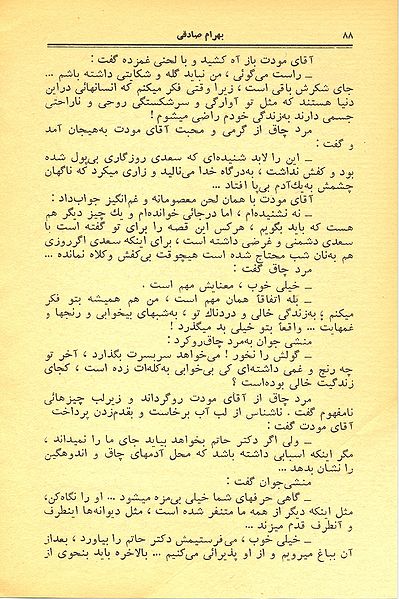 ۸۸ بهرام صادقی
آقای مودت باز آه کشید و با لحنی غمزده گفت :
ــ راست می‌گوئی ، من نباید گله و شکایتی داشته باشم ...
جای شکرش باقی است ، زیرا وقتی فکر میکنم که انسانهائی دراین
دنیا هستند که مثل تو آوارگی و سرشکستگی روحی و ناراحتی
جسمی دارند به‌زندگی خودم راضی میشوم !
مرد چاق از گرمی و محبت آقای مودت به‌هیجان آمد
و گفت :
ــ این را لابد شنیده‌ای که سعدی روزگاری بی‌پول شده
بود و کفش نداشت ، به‌درگاه خدا می‌نالید و زاری میکرد که ناگهان
چشمش به‌یك‌آدم بی‌پا افتاد ...
آقای مودت با همان لحن معصومانه و غم‌انگیز جواب‌داد :
ــ نه نشنیده‌ام ، اما درجائی خوانده‌ام و یك چیز دیگر هم
هست که باید بگویم ، هرکس این قصه را برای تو گفته است با
سعدی دشمنی و غرضی داشته است ، برای اینکه سعدی اگرروزی
هم به‌نان شب محتاج شده است هیچوقت بی‌کفش وکلاه نمانده ...
مرد چاق گفت :
ــ خیلی خوب ، معنایش مهم است .
ــ بله اتفاقا همان مهم است ، من هم همیشه بتو فکر
میکنم ؛ به‌زندگی خالی و دردناك تو ، به‌شبهای بیخوابی و رنجها و
غمهایت ... واقعاً بتو خیلی بد میگذرد !
منشی جوان به‌مرد چاق‌روکرد :
ــ گولش را نخور ! می‌خواهد سربسرت بگذارد ، آخر تو
چه رنج و غمی داشته‌ای کی بی‌خوابی به‌کله‌ات زده است ، کجای
زندگیت خالی بوده‌است ؟
مرد چاق از آقای مودت روگرداند و زیرلب چیزهائی
نامفهوم گفت . ناشناس از لب آب برخاست و بقدم‌زدن پرداخت
آقای مودت گفت :
ــ ولی اگر دکتر حاتم بخواهد بیاید جای ما را نمیداند ،
مگر اینکه اسبابی داشته باشد که محل آدمهای چاق و اندوهگین
را نشان بدهد ...
منشی‌جوان گفت :
ــ گاهی حرفهای شما خیلی بی‌مزه میشود ... او را نگاه‌کن،
مثل اینکه دیگر از همه ما متنفر شده است ، مثل دیوانه‌ها اینطرف
و آنطرف قدم میزند ...
ــ خیلی خوب ، می‌فرستیمش دکتر حاتم را بیاورد ، بعداز
آن بباغ میرویم و از او پذیرائی می‌کنیم ... بالاخره باید بنحوی از